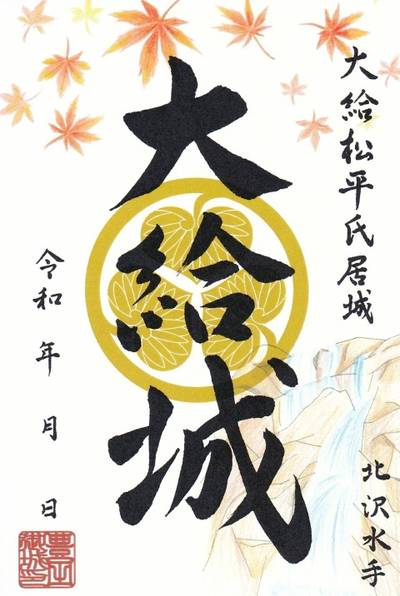 大給松平氏居城
大給城
北沢水手
令和 年 月 日